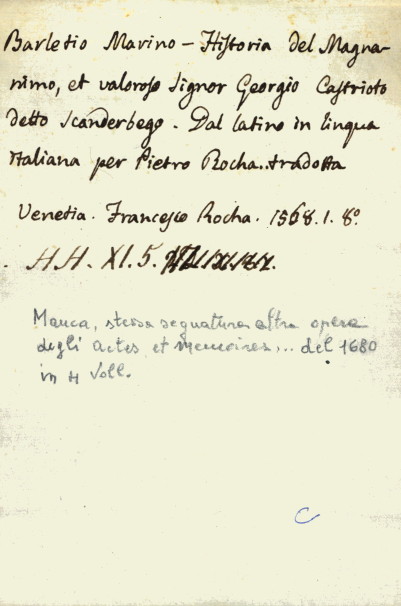 Barletio Marino - Historia del Magna-
nimo, et valoroso Signor Georgio Castrioto
detto Scanderbego. Dal latino in lingua
Italiana per Pietro Rocha.. tradotta
Venetia. Francesco Rocha. 1568. 1. 8º.
H.H. XI. 5.
Manca, stessa segnatura altra opera
degli actes et memoires... del 1680
in 4 voll.
C